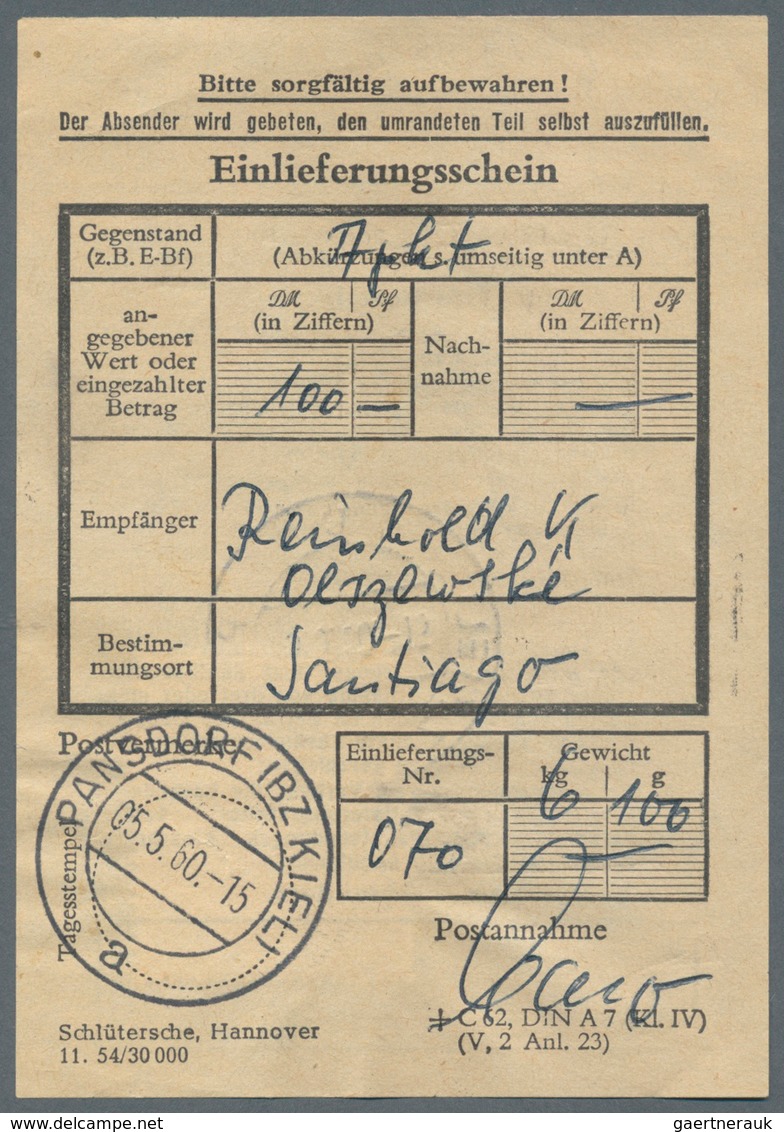 Bitte sorgfältig aufbewahren!
Der Absender wird gebeten, den umrandeten Teil selbst auszufüllen.
Einlieferungsschein
Gegenstand
(z.B. E-Bf)
(Abkürzungen s. umseitig unter A)
an-
gegebener
Wert oder
eingezahlter
Betrag
DM Pf
(in Ziffern)
100 —
Nach-
nahme
DM Pf
(in Ziffern)
—
Empfänger
Reinhold
Olszewski
Bestim-
mungsort
Santiago
Postvermerke
Einlieferungs-
Nr.
070
Gewicht
kg g
6 100
Tagesstempel
PANSDORF (BZ KIEL)
05.5.60.-15
a
Postannahme
C 62, DIN A 7 (Kl. IV)
(V, 2 Anl. 23)
Schlütersche, Hannover
11. 54/30 000
www.delcampe.net
gaertnerauk